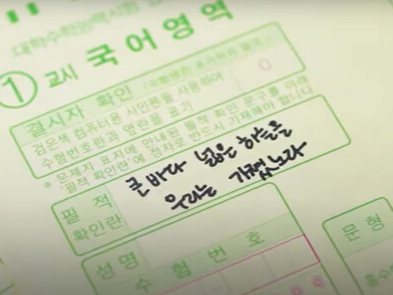 대학수학능력시험
① 교시 국어영역
결시자 확인
검은색 컴퓨터용 사인펜을 사용하여
수험번호란과 옆란을 표기
※ 문제지 표지에 안내된 필적 확인 문구를 아래
'필적 확인란'에 정자로 반드시 기재해야 합니다
필 적
확인란
큰 바다 넓은 하늘을
우리는 가졌노라
성명
수 험 번 호
문형